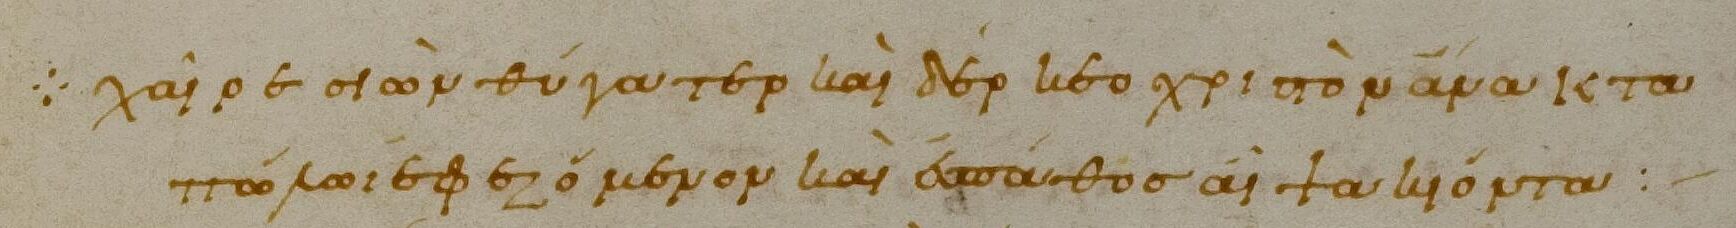 ⁘ χαῖρε σιὼν θύγατερ καὶ δέρκεο χριστὸν ἄνακτα
πώλωι ἐφεζόμενον καὶ ἐς πάθος αἶψα κιόντα :-